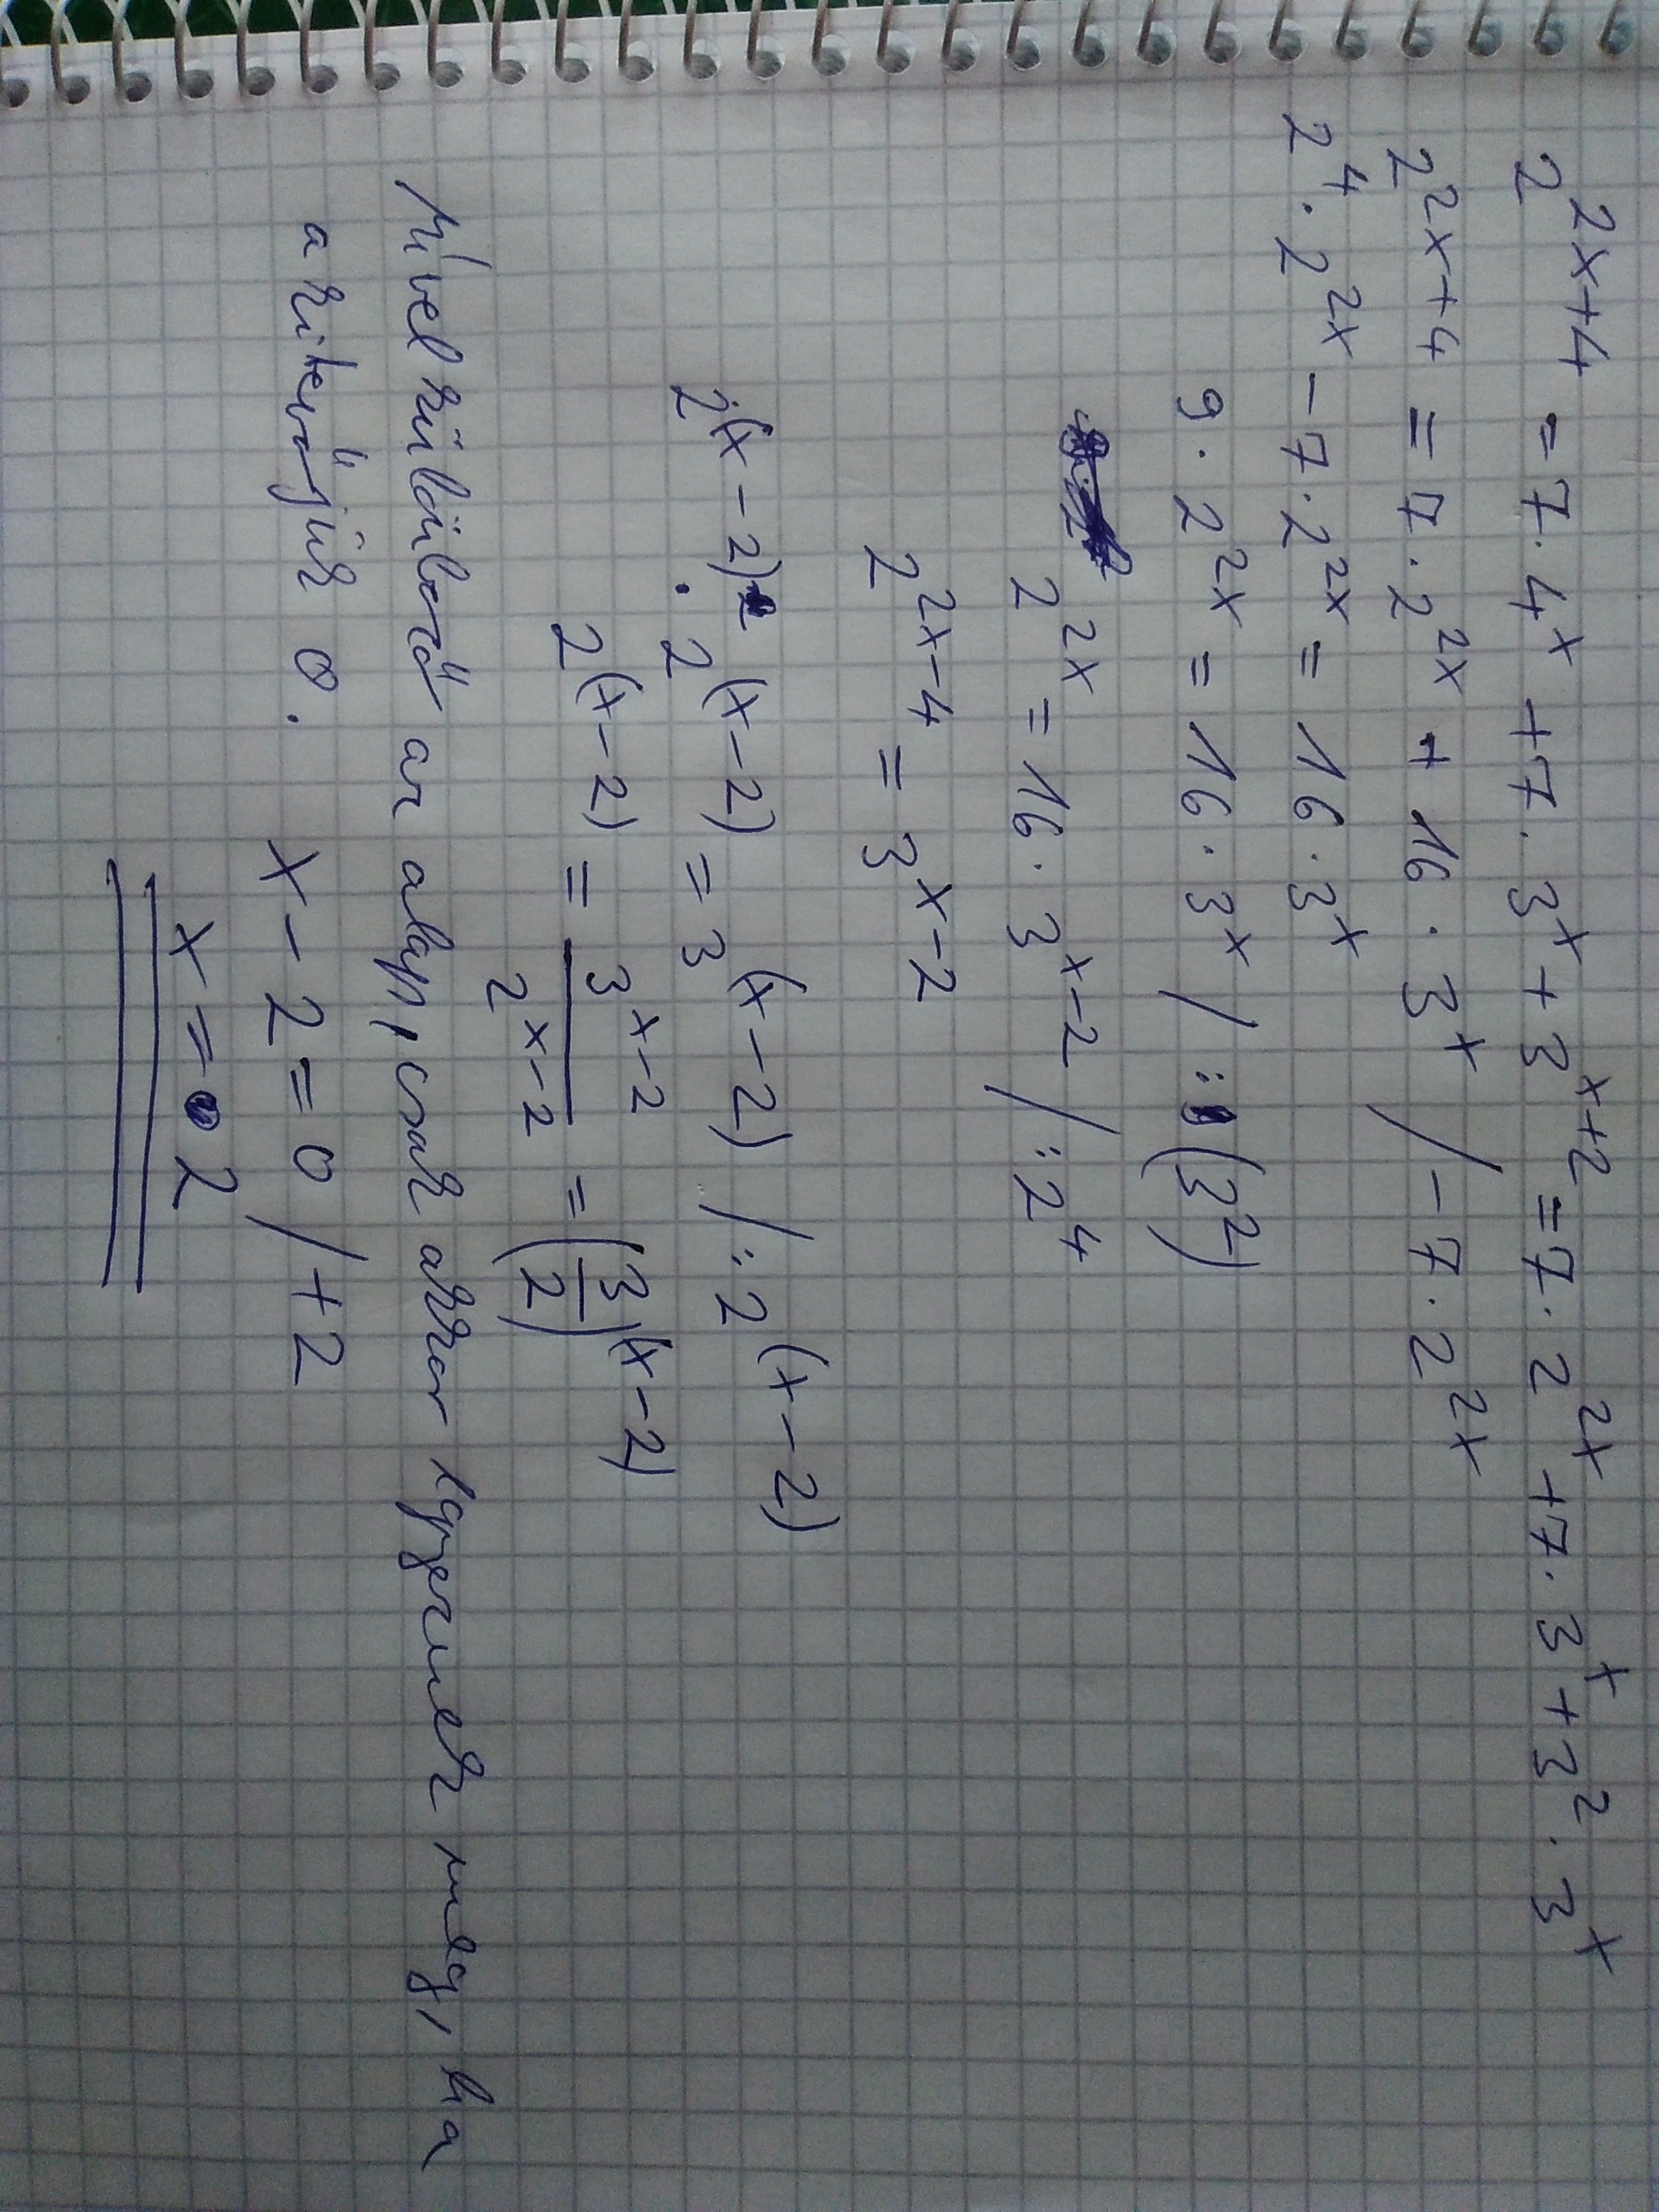 2^(2x+4) = 7·4^x + 7·3^x + 3^(x+2) = 7·2^(2x) + 7·3^x + 3^2·3^x
2^(2x+4) = 7·2^(2x) + 16·3^x / -7·2^(2x)
2^4·2^(2x) - 7·2^(2x) = 16·3^x
9·2^(2x) = 16·3^x / :(3^2)
2^(2x) = 16·3^(x-2) / :2^4
2^(2x-4) = 3^(x-2)
2^(x-2)·2^(x-2) = 3^(x-2) / :2^(x-2)
2^(x-2) = 3^(x-2)/2^(x-2) = (3/2)^(x-2)
Mivel különböző az alap, csak akkor egyeznek meg, ha
a kitevőjük 0.
x-2=0 /+2
x=2